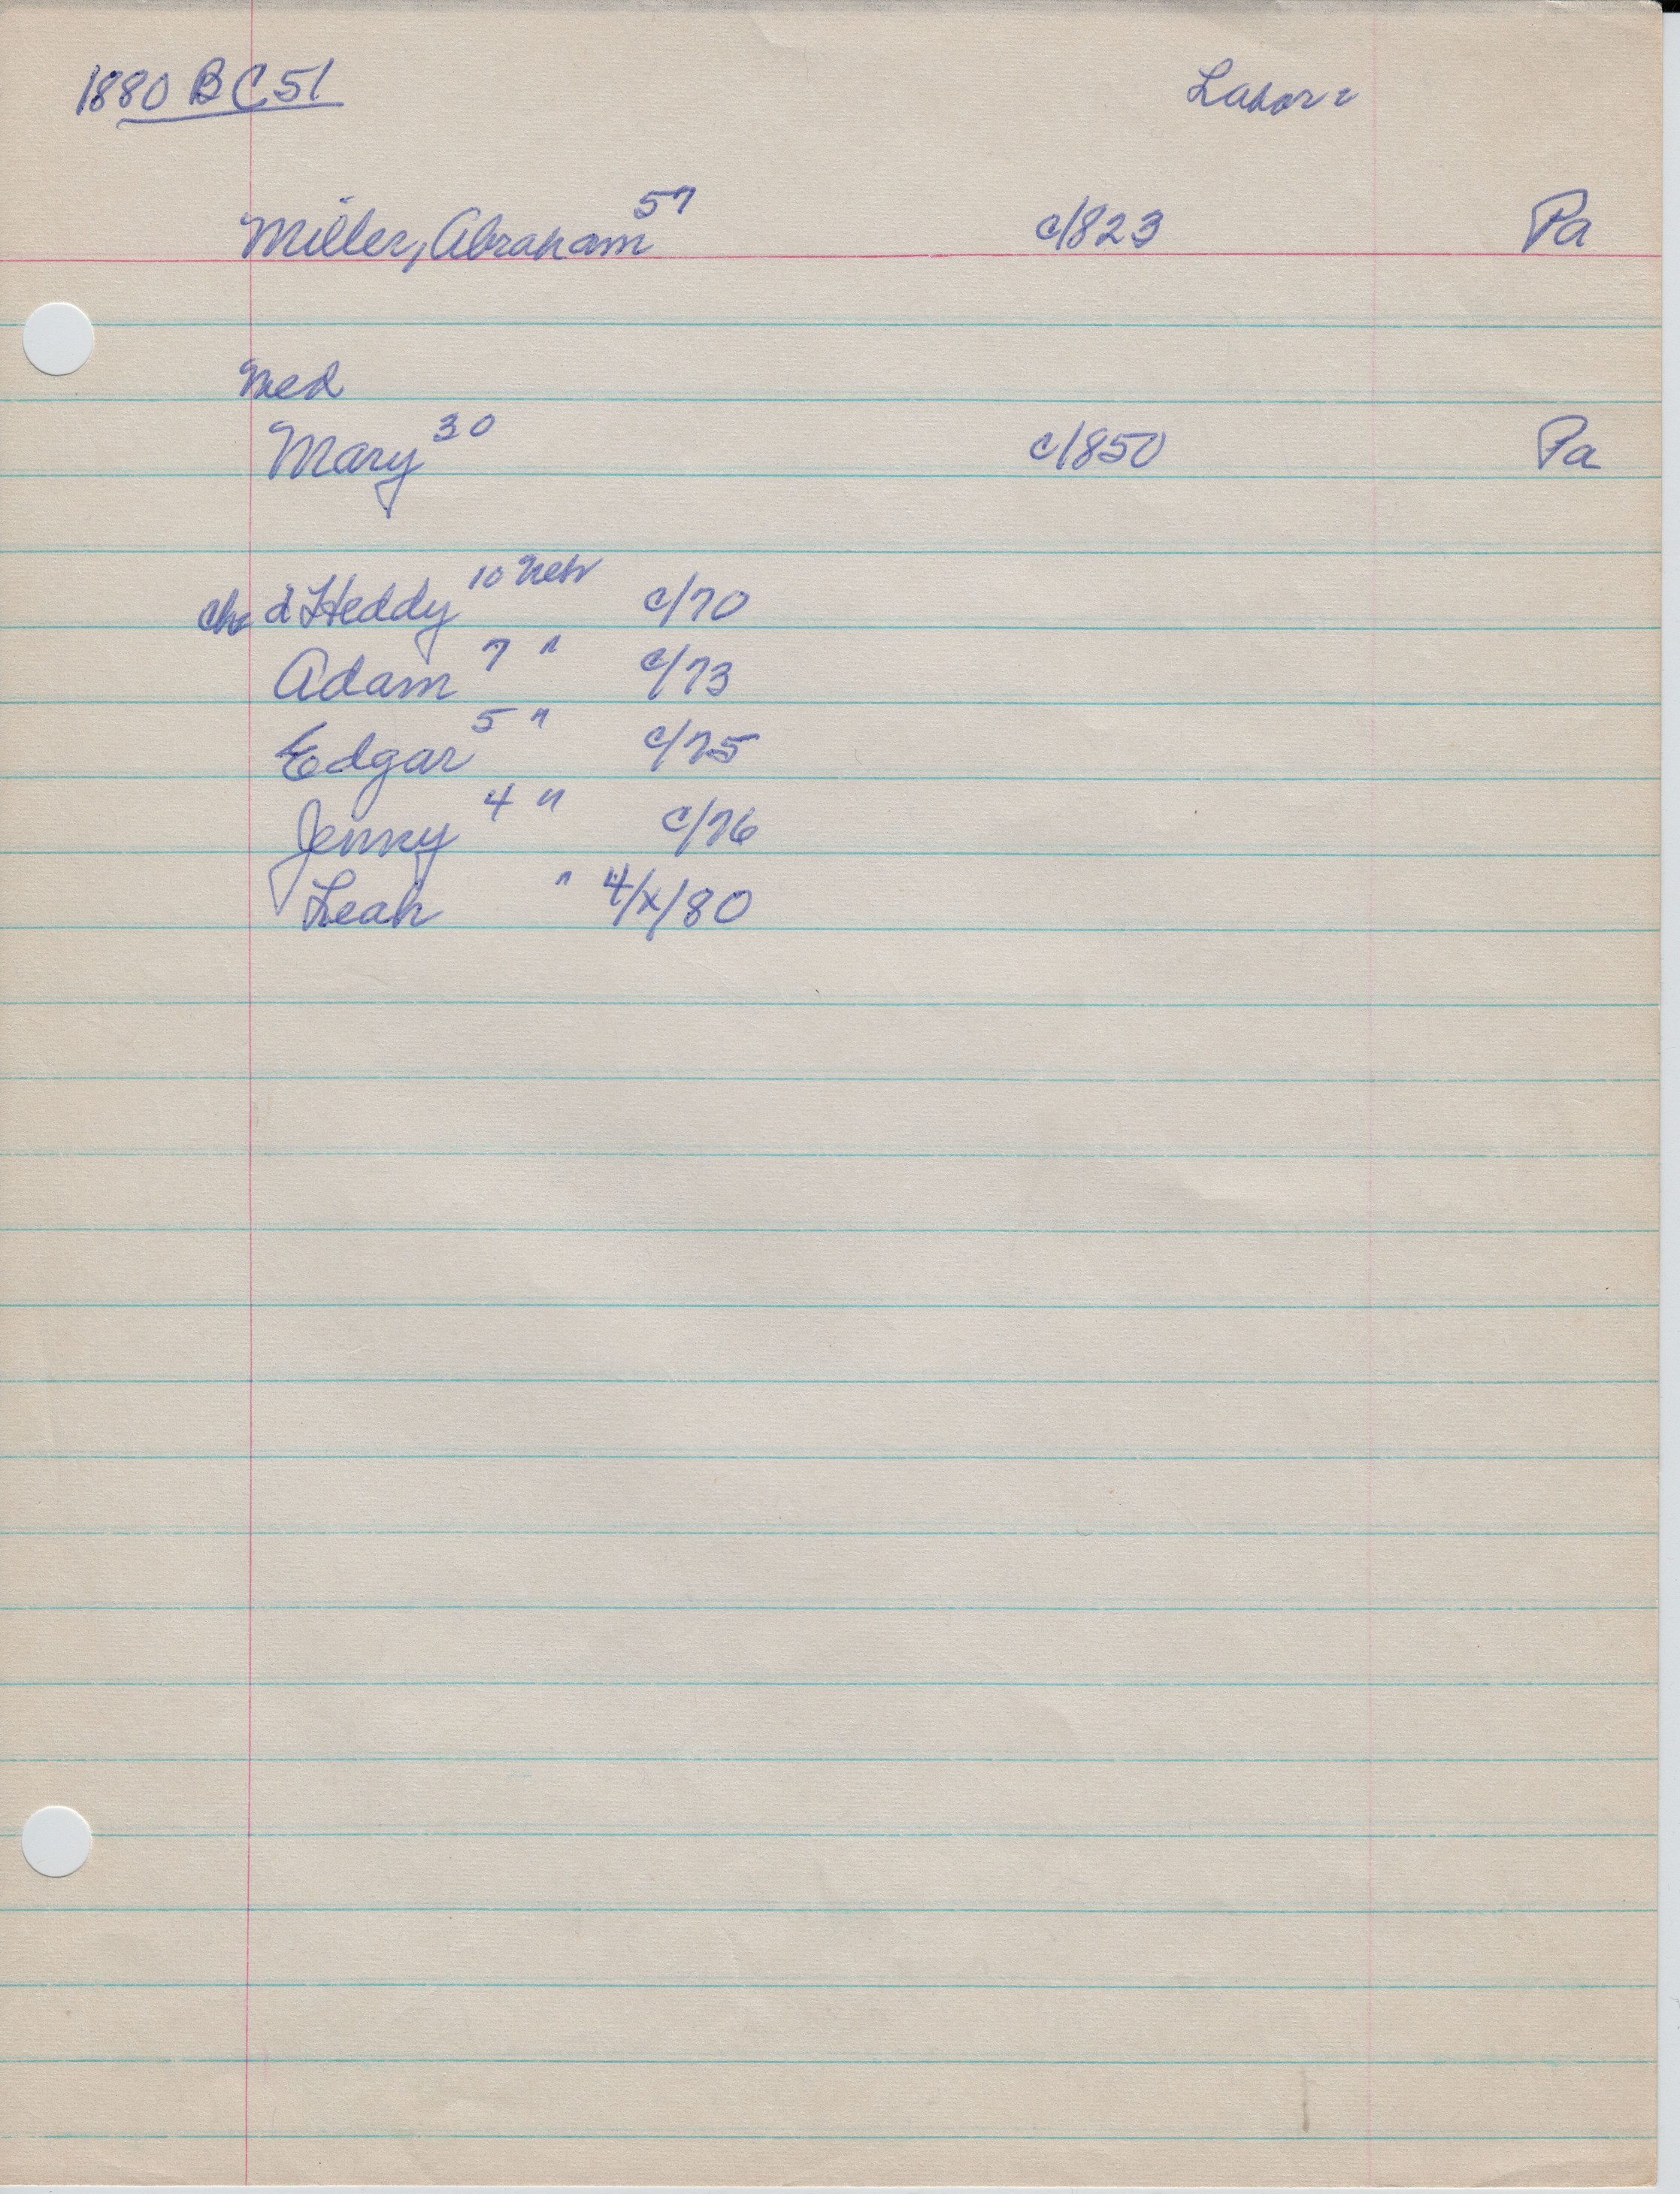 1880 BC51 Labor
Miller, Abraham 57 c/823 Pa
med
Mary 30 c/850 Pa
chs d Heddy 10 Neb c/70
Adam 7 " c/73
Edgar 5 " c/75
Jenny 4 " c/76
Leah " 4/x/80